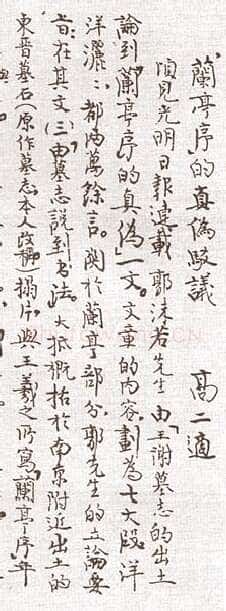 蘭亭序的真偽駁議 高二適
頃見光明日報連載郭沫若先生由「王謝墓志的出土
論到「蘭亭序的真偽」一文。文章的內容，劃為七大段，洋
洋灑〻，都為萬餘言。關於蘭亭部分，郭先生的立論要
旨，在其文(三)由墓志說到書法。大抵概括於南京附近出土的
東晉墓石(原作墓志，本人改稱)搨片，與王羲之所寫「蘭亭序」年